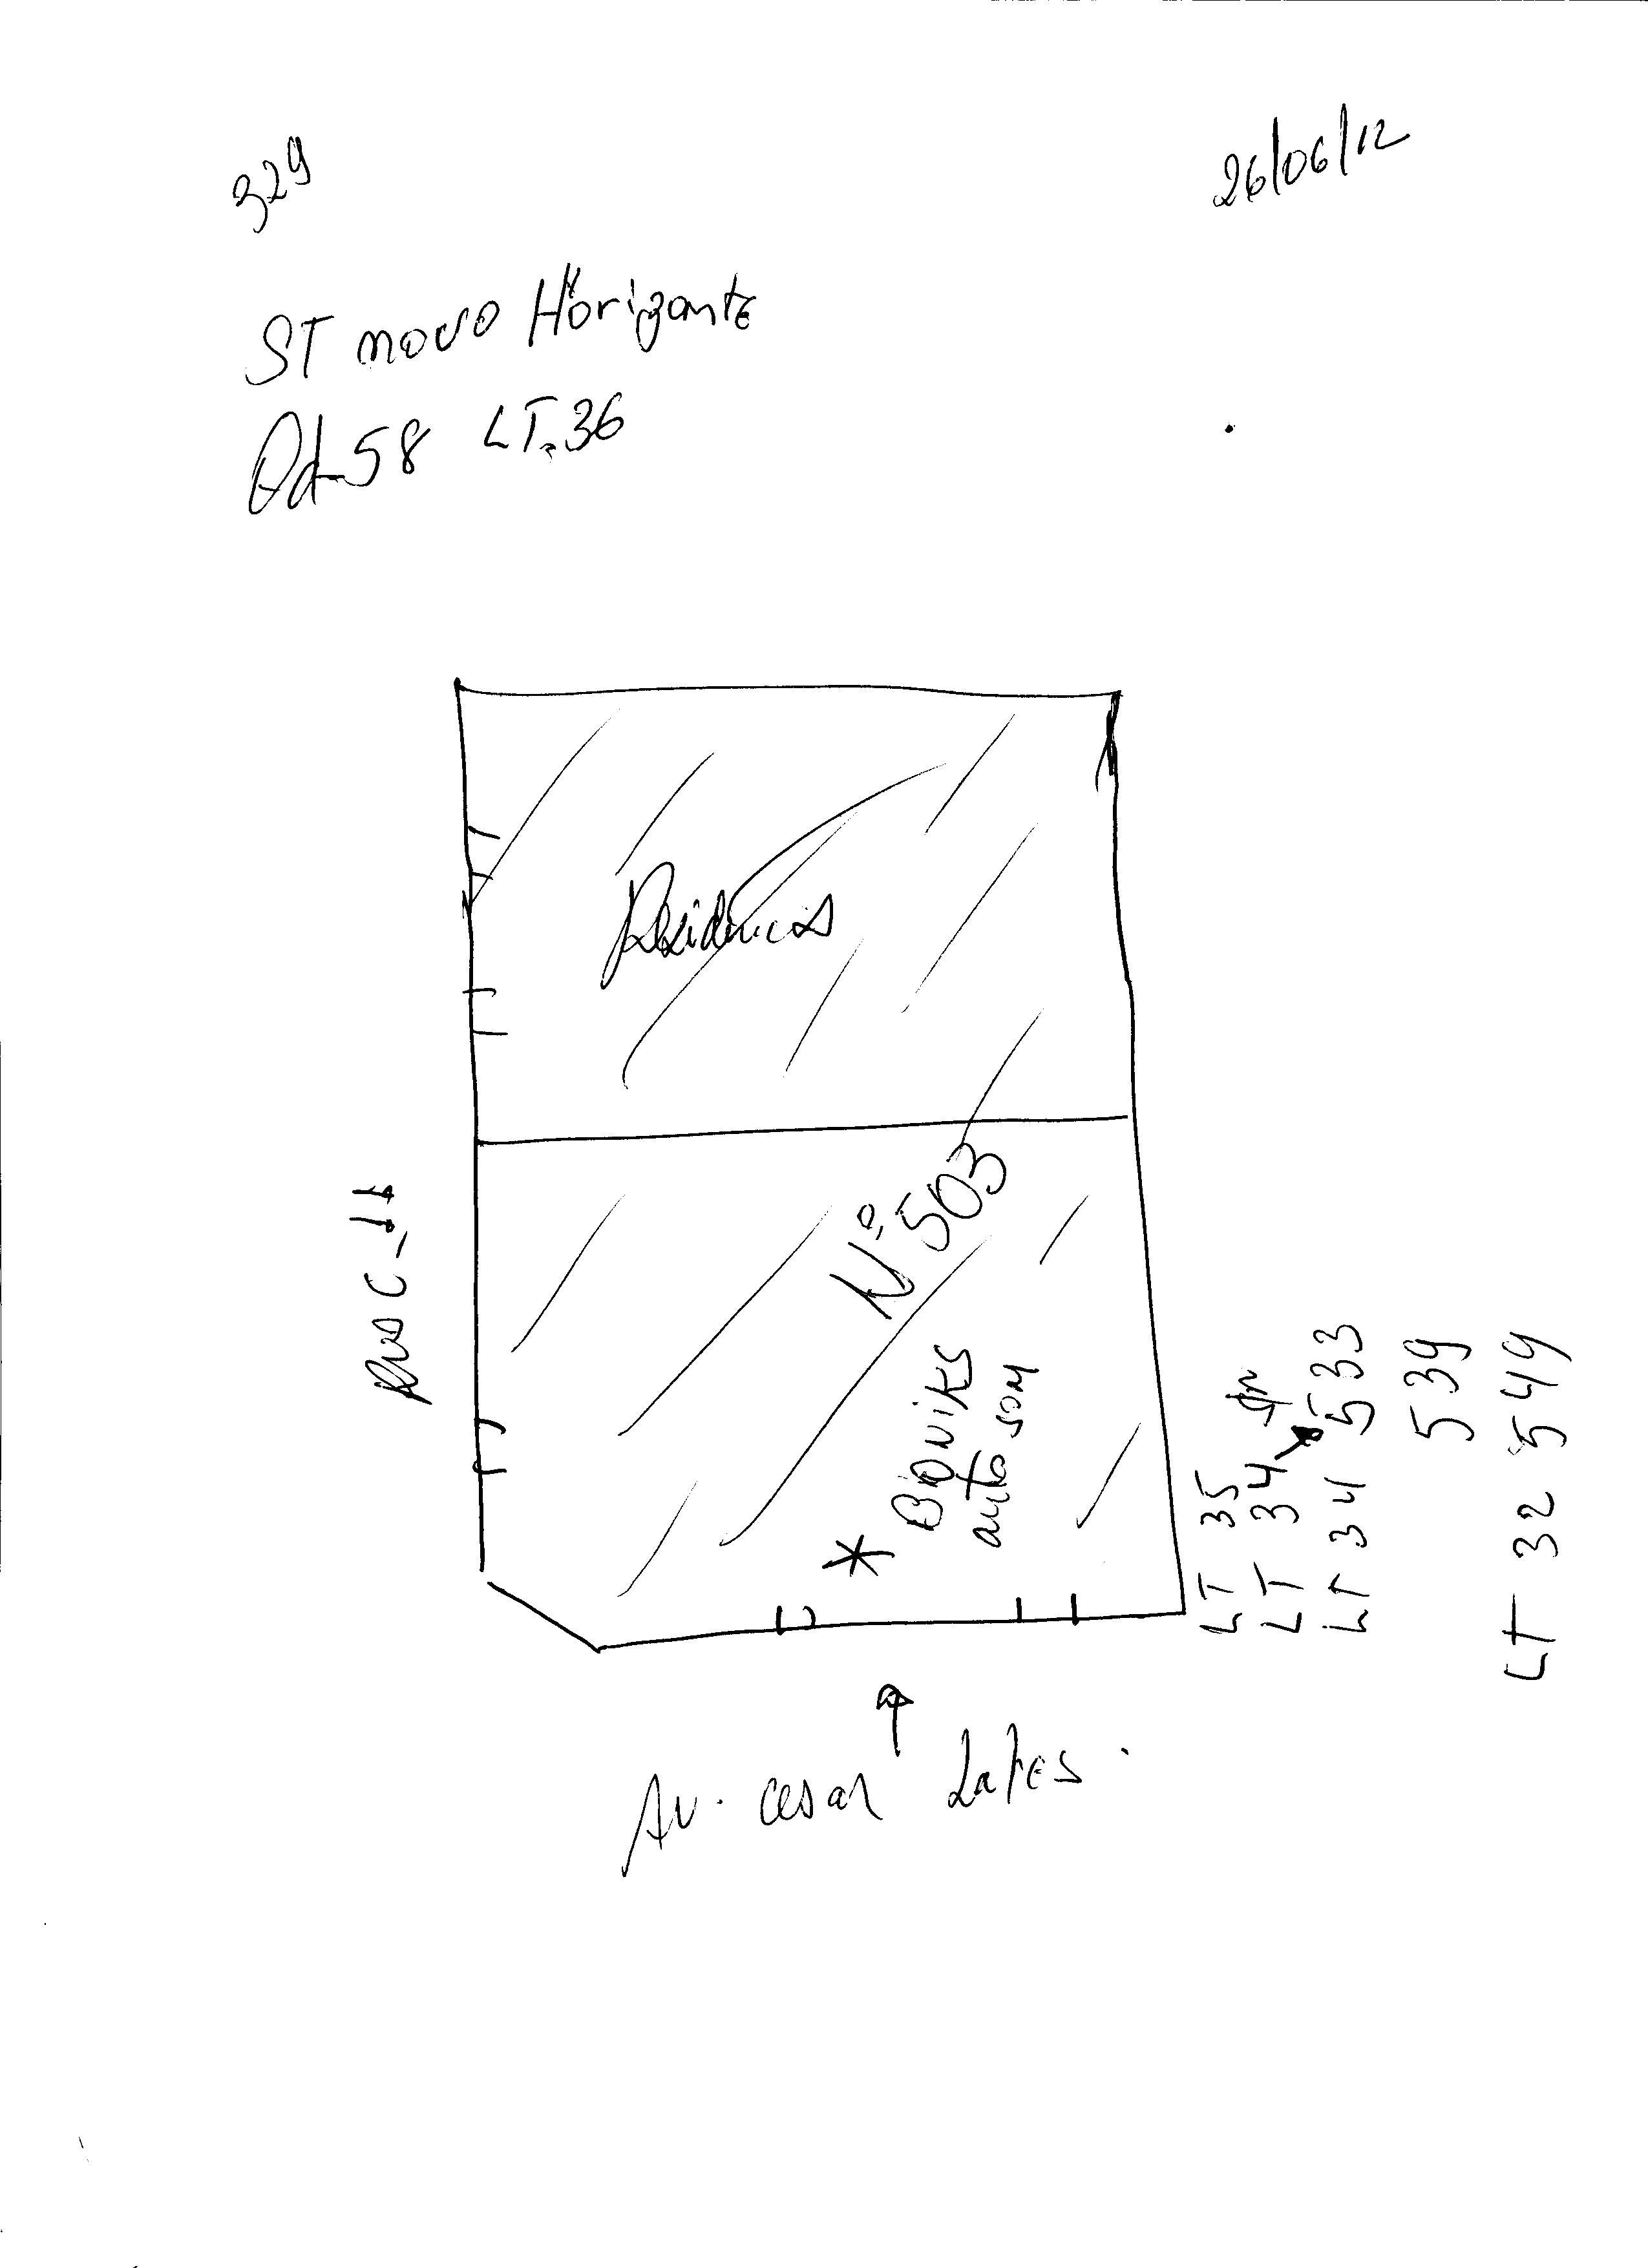 329
26/06/12
ST novo Horizonte
Qd-58 LT.36
Residencia
Rua C-11
Nº 503
* Boniks
auto som
LT 35
LT 34
LT 34 533
539
LT 32 549
Av. cesar Lates.